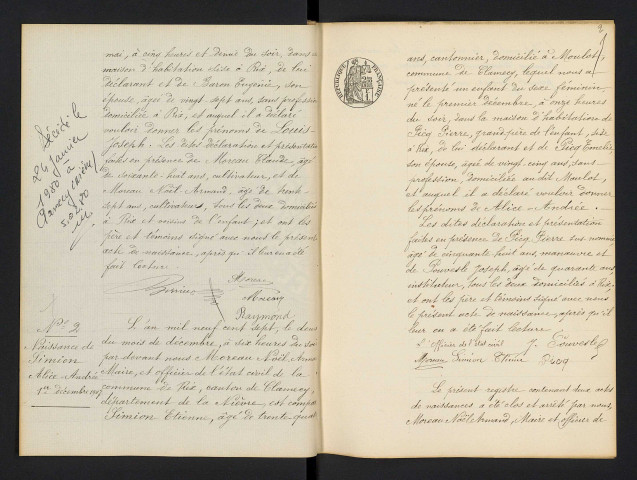 mai, à cinq heures et demie du soir, dans sa
maison d'habitation sise à Rix, de lui
déclarant et de Baron Eugénie, son
épouse, âgée de vingt sept ans, sans profession
domiciliée à Rix, et auquel il a déclaré
vouloir donner les prénoms de Louis-
Joseph. Les dites déclaration et présentation
faites en présence de Moreau Claude, âgé
de soixante-huit ans, cultivateur, et de
Moreau Noël-Armand, âgé de trente
sept ans, cultivateur, tous les deux domiciliés
à Rix et voisins de l'enfant; et ont les
père et témoins signé avec nous le présent
acte de naissance, après qu'il leur en a été
fait lecture.
Moreau
Moreau
Raymond
Décédé le
24 janvier
1980 à
Clamecy (Nièvre)
5.02.80
N° 2
Naissance de
Simion
Alice Andrée
1er décembre 1907
L'an mil neuf cent sept, le deux
du mois de décembre, à dix heures du soir
par devant nous Moreau Noël Armand
Maire, et officier de l'état civil de la
commune de Rix, canton de Clamecy,
département de la Nièvre, est comparu
Simion Etienne, âgé de trente quatre
2
RÉPUBLIQUE FRANÇAISE
ans, cantonnier, domicilié à Moulot,
commune de Clamecy, lequel nous a
présenté un enfant du sexe féminin
né le premier décembre, à onze heures
du soir, dans la maison d'habitation de
Picq Pierre, grand père de l'enfant, sise
à Rix, de lui déclarant et de Picq Emélie
son épouse, âgée de vingt cinq ans, sans
profession, domiciliée au dit Moulot,
et auquel il a déclaré vouloir donner
les prénoms de Alice-Andrée.
Les dites déclaration et présentation
faites en présence de Picq Pierre sus nommé
âgé de cinquante huit ans, manœuvre et
de Pouveste Joseph, âgé de quarante ans
instituteur, tous les deux domiciliés à Rix,
et ont les père et témoins signé avec nous
le présent acte de naissance, après qu'il
leur en a été fait lecture.
L'officier de l'état civil J. Pouveste
Moreau Simion Etienne Picq
Le présent registre contenant deux actes
de naissances a été clos et arrêté par nous,
Moreau Noël Armand, Maire et officier de